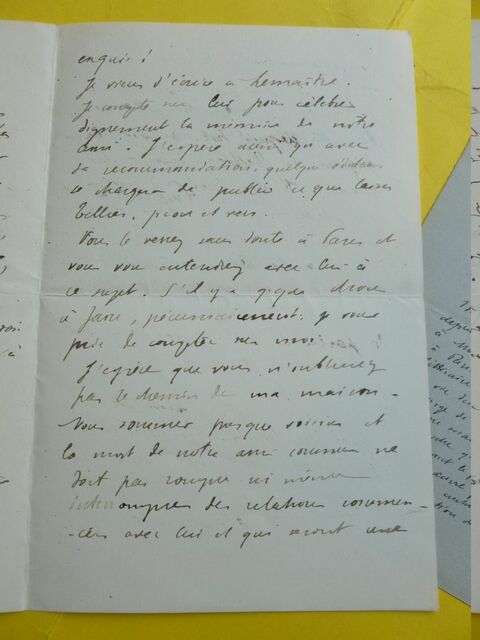 exquis !
Je viens d'écrire à Lemaître.
Je compte sur lui pour célébrer
dignement la mémoire de notre
ami. J'espère aussi qu'avec
sa recommandation, quelque éditeur
se chargera de publier ce que laisse
Tellier, prose et vers.
Vous le verrez sans doute à Paris et
vous vous entendrez avec lui à
ce sujet. S'il y a qque chose
à faire, pécuniairement, je vous
prie de compter sur moi.
J'espère que vous n'oublierez
pas le chemin de ma maison.
Nous sommes presque voisins et
la mort de notre ami commun ne
doit pas rompre ni même
interrompre des relations commen-
-cées avec lui et qui seront une